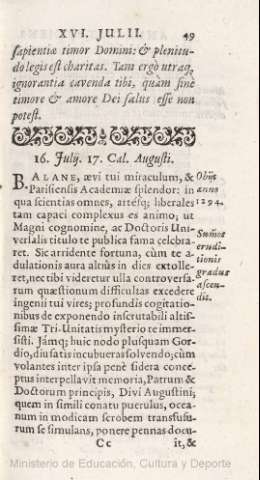 XVI. JULII. 49
sapientiæ timor Domini: & plenitu-
do legis est charitas. Tam ergò utraq;
ignorantia cavenda tibi, quàm sine
timore & amore Dei salus esse non
potest.
16. Julij. 17. Cal. Augusti.
B. ALANE, ævi tui miraculum, &
Parisiensis Academiæ splendor: in
qua scientias omnes, artésq; liberales
tam capaci complexus es animo; ut
Magni cognomine, ac Doctoris Uni-
versalis titulo te publica fama celebra-
ret. Sic arridente fortuna, cùm te a-
dulationis aura altiùs in dies extolle-
ret, nec tibi videretur ulla controversa-
rum quæstionum difficultas excedere
ingenii tui vires; profundis cogitatio-
nibus de exponendo inscrutabili altis-
simæ Tri-Unitatis mysterio te immer-
sisti. Jámq; huic nodo plusquam Gor-
dio, diu satis incubueras solvendo; cùm
volantes inter ipsa penè sidera conce-
ptus interpellavit memoria, Patrum &
Doctorum principis, Divi Augustini;
quem in simili conatu puerulus, oce-
anum in modicam scrobem transfusu-
rum se simulans, ponere pennas docu-
Cc it, &
Obiit
anno
1294.
Summæ
erudi-
tionis
gradus
ascen-
dit.
Ministerio de Educación, Cultura y Deporte